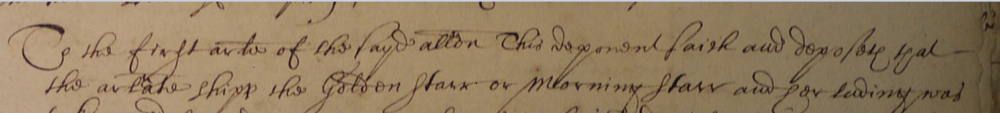 To the first arte of the sayd allon This deponent saith and deposeth that
the arlate shipp the Golden Starr or Morning Starr and her ladinge was